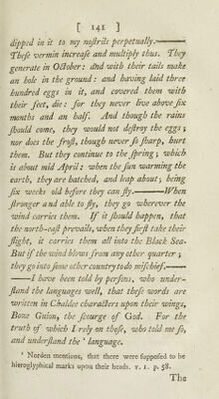 [ 141 ]
dipped in it to my nostrils perpetually.———
These vermin increase and multiply thus. They
generate in October: and with their tails make
an hole in the ground: and having laid three
hundred eggs in it, and covered them with
their feet, die: for they never live above six
months and an half. And though the rains
should come, they would not destroy the eggs;
nor does the frost, though never so sharp, hurt
them. But they continue to the spring; which
is about mid April: when the sun warming the
earth, they are hatched, and leap about; being
six weeks old before they can fly.———When
stronger and able to fly, they go wherever the
wind carries them. If it should happen, that
the north-east prevails, when they first take their
flight, it carries them all into the Black Sea.
But if the wind blows from any other quarter;
they go into some other country to do mischief.———
—I have been told by persons, who under-
stand the languages well, that these words are
written in Chaldee characters upon their wings,
Boze Guion, the scourge of God. For the
truth of which I rely on those, who told me so,
and understand the ¹ language.
¹ Norden mentions, that there were supposed to be
hieroglyphical marks upon their heads. v. 1. p. 58.
The